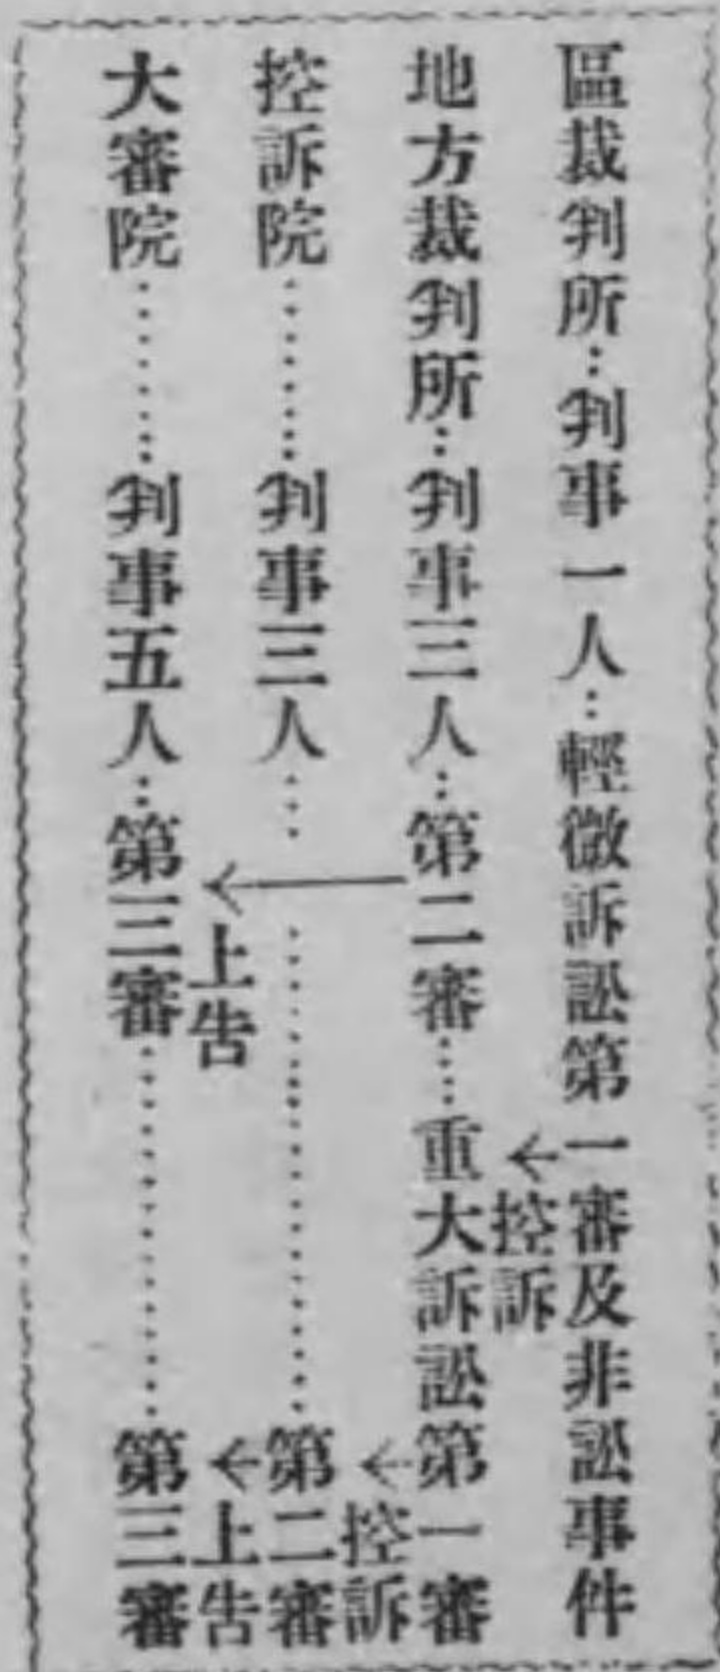 區裁判所…判事一人…輕微訴訟第一審及非訟事件
←控訴
地方裁判所…判事三人…第二審……重大訴訟第一審
←控訴
控訴院…………判事三人…………………………第二審
←上告
←上告
大審院…………判事五人…第三審……………………第三審